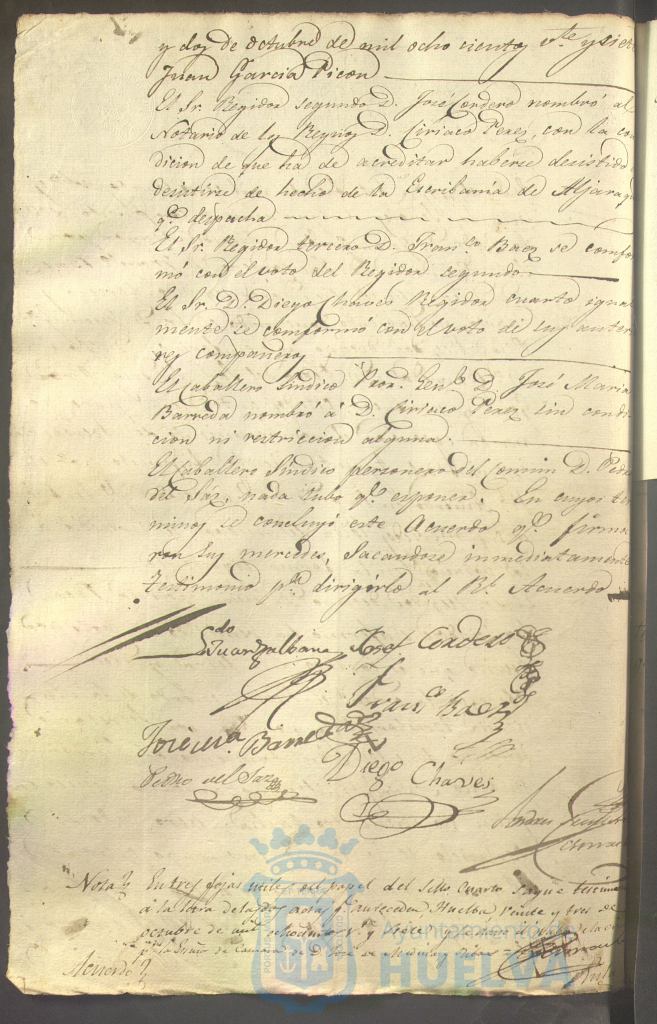 y dos de octubre de mil ocho cientos vte. y siete
Juan Garcia Picon
El Sr. Regidor segundo D. José Cordero nombró al
Notario de los Reynos D. Ciriaco Perez, con la con
dicion de que ha de acreditar haberse desistido
desistirse de hecho de la Escribanía de Aljaraq
qe. despacha
El Sr. Regidor tercero D. Franco. Baez se confor
mó con el voto del Regidor segundo
El Sr. D. Diego Chaves Regidor cuarto igual
mente se comformó con el voto de sus anterio
res compañeros
El Caballero Síndico Pror. Genl. D. José Maria
Barreda nombró á D. Ciriaco Perez sin condi
cion ni restriccion alguna.
El Caballero Síndico personero del Comun D. Pedro
del Sáz, nada tubo qe. esponer. En cuyos ter
minos se concluyó este Acuerdo qe. firma
ron sus mercedes, sacandose inmediatamente
testimonio pa. dirigirlo al Rl. Acuerdo
Josef Cordero
Franco. Baez
Barreda
Pedro del Saz
Diego Chaves
Nota
En tres fojas utiles del papel del Sello Cuarto saque testimo
a la letra de las dos actas qe. anteceden Huelva veinte y tres de
octubre de mil ochocientos ve. y siete
de Camara de D. José de
Acuerdo
Ayuntamiento
HUELVA